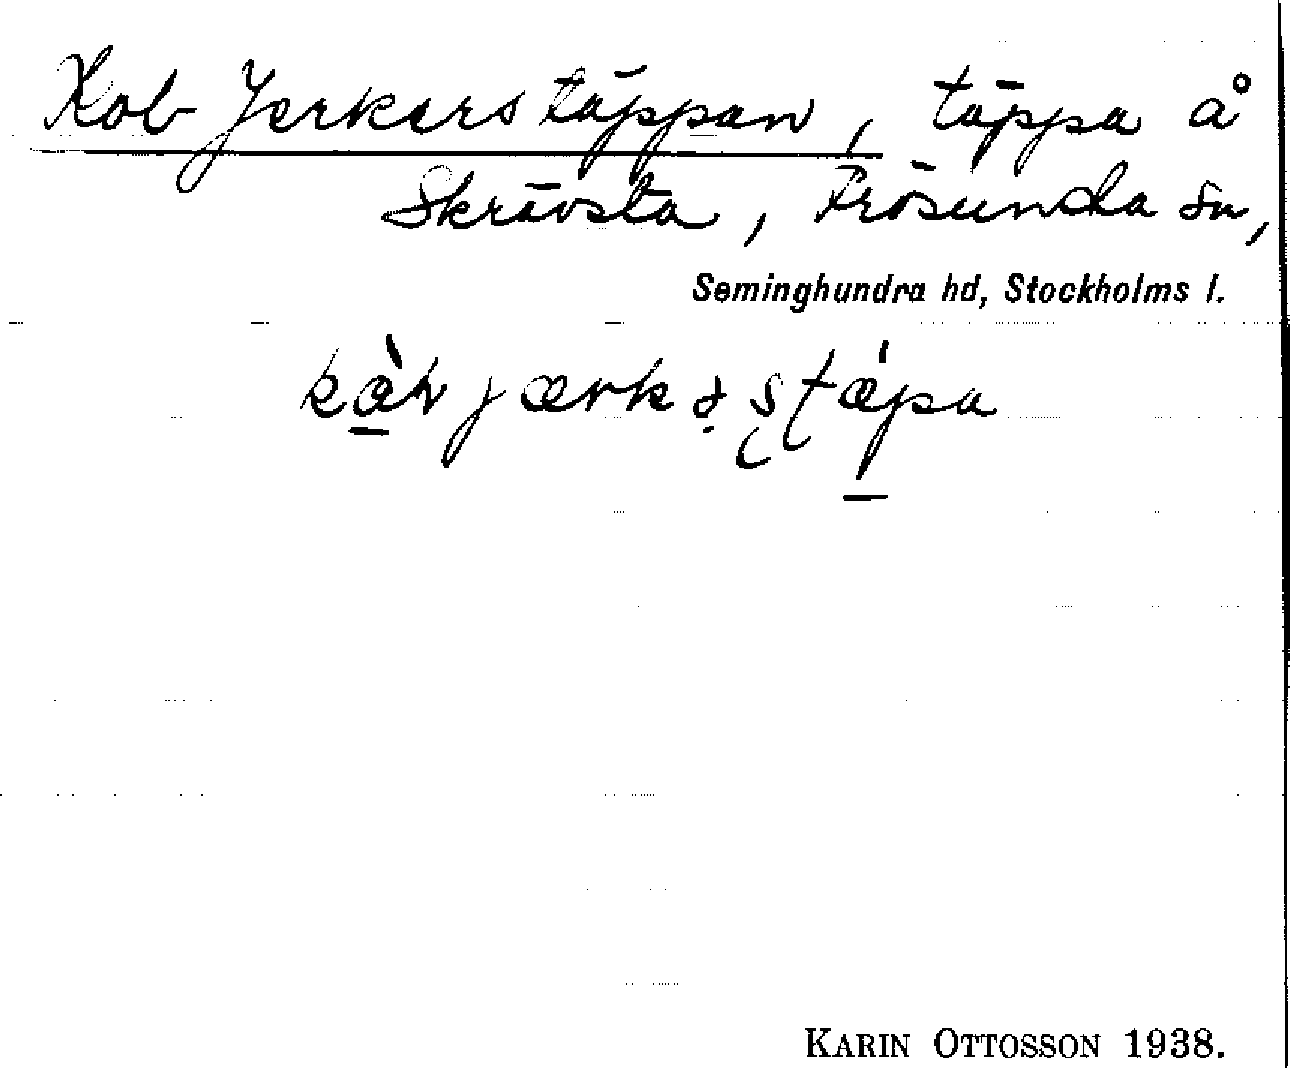 Kob Jerkers täppan, täppa å
Skrävsta, Frösunda sn,
Seminghundra hd, Stockholms l.
KARIN OTTOSSON 1938.